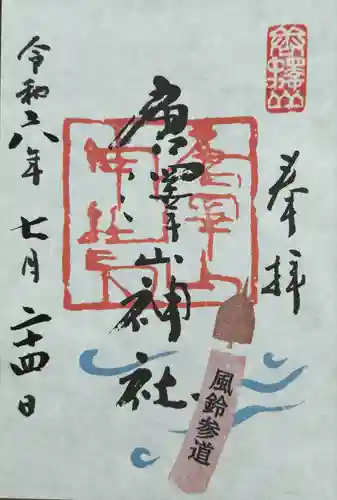 唐澤山
奉拝
唐澤山神社
風鈴参道
令和六年七月二十四日